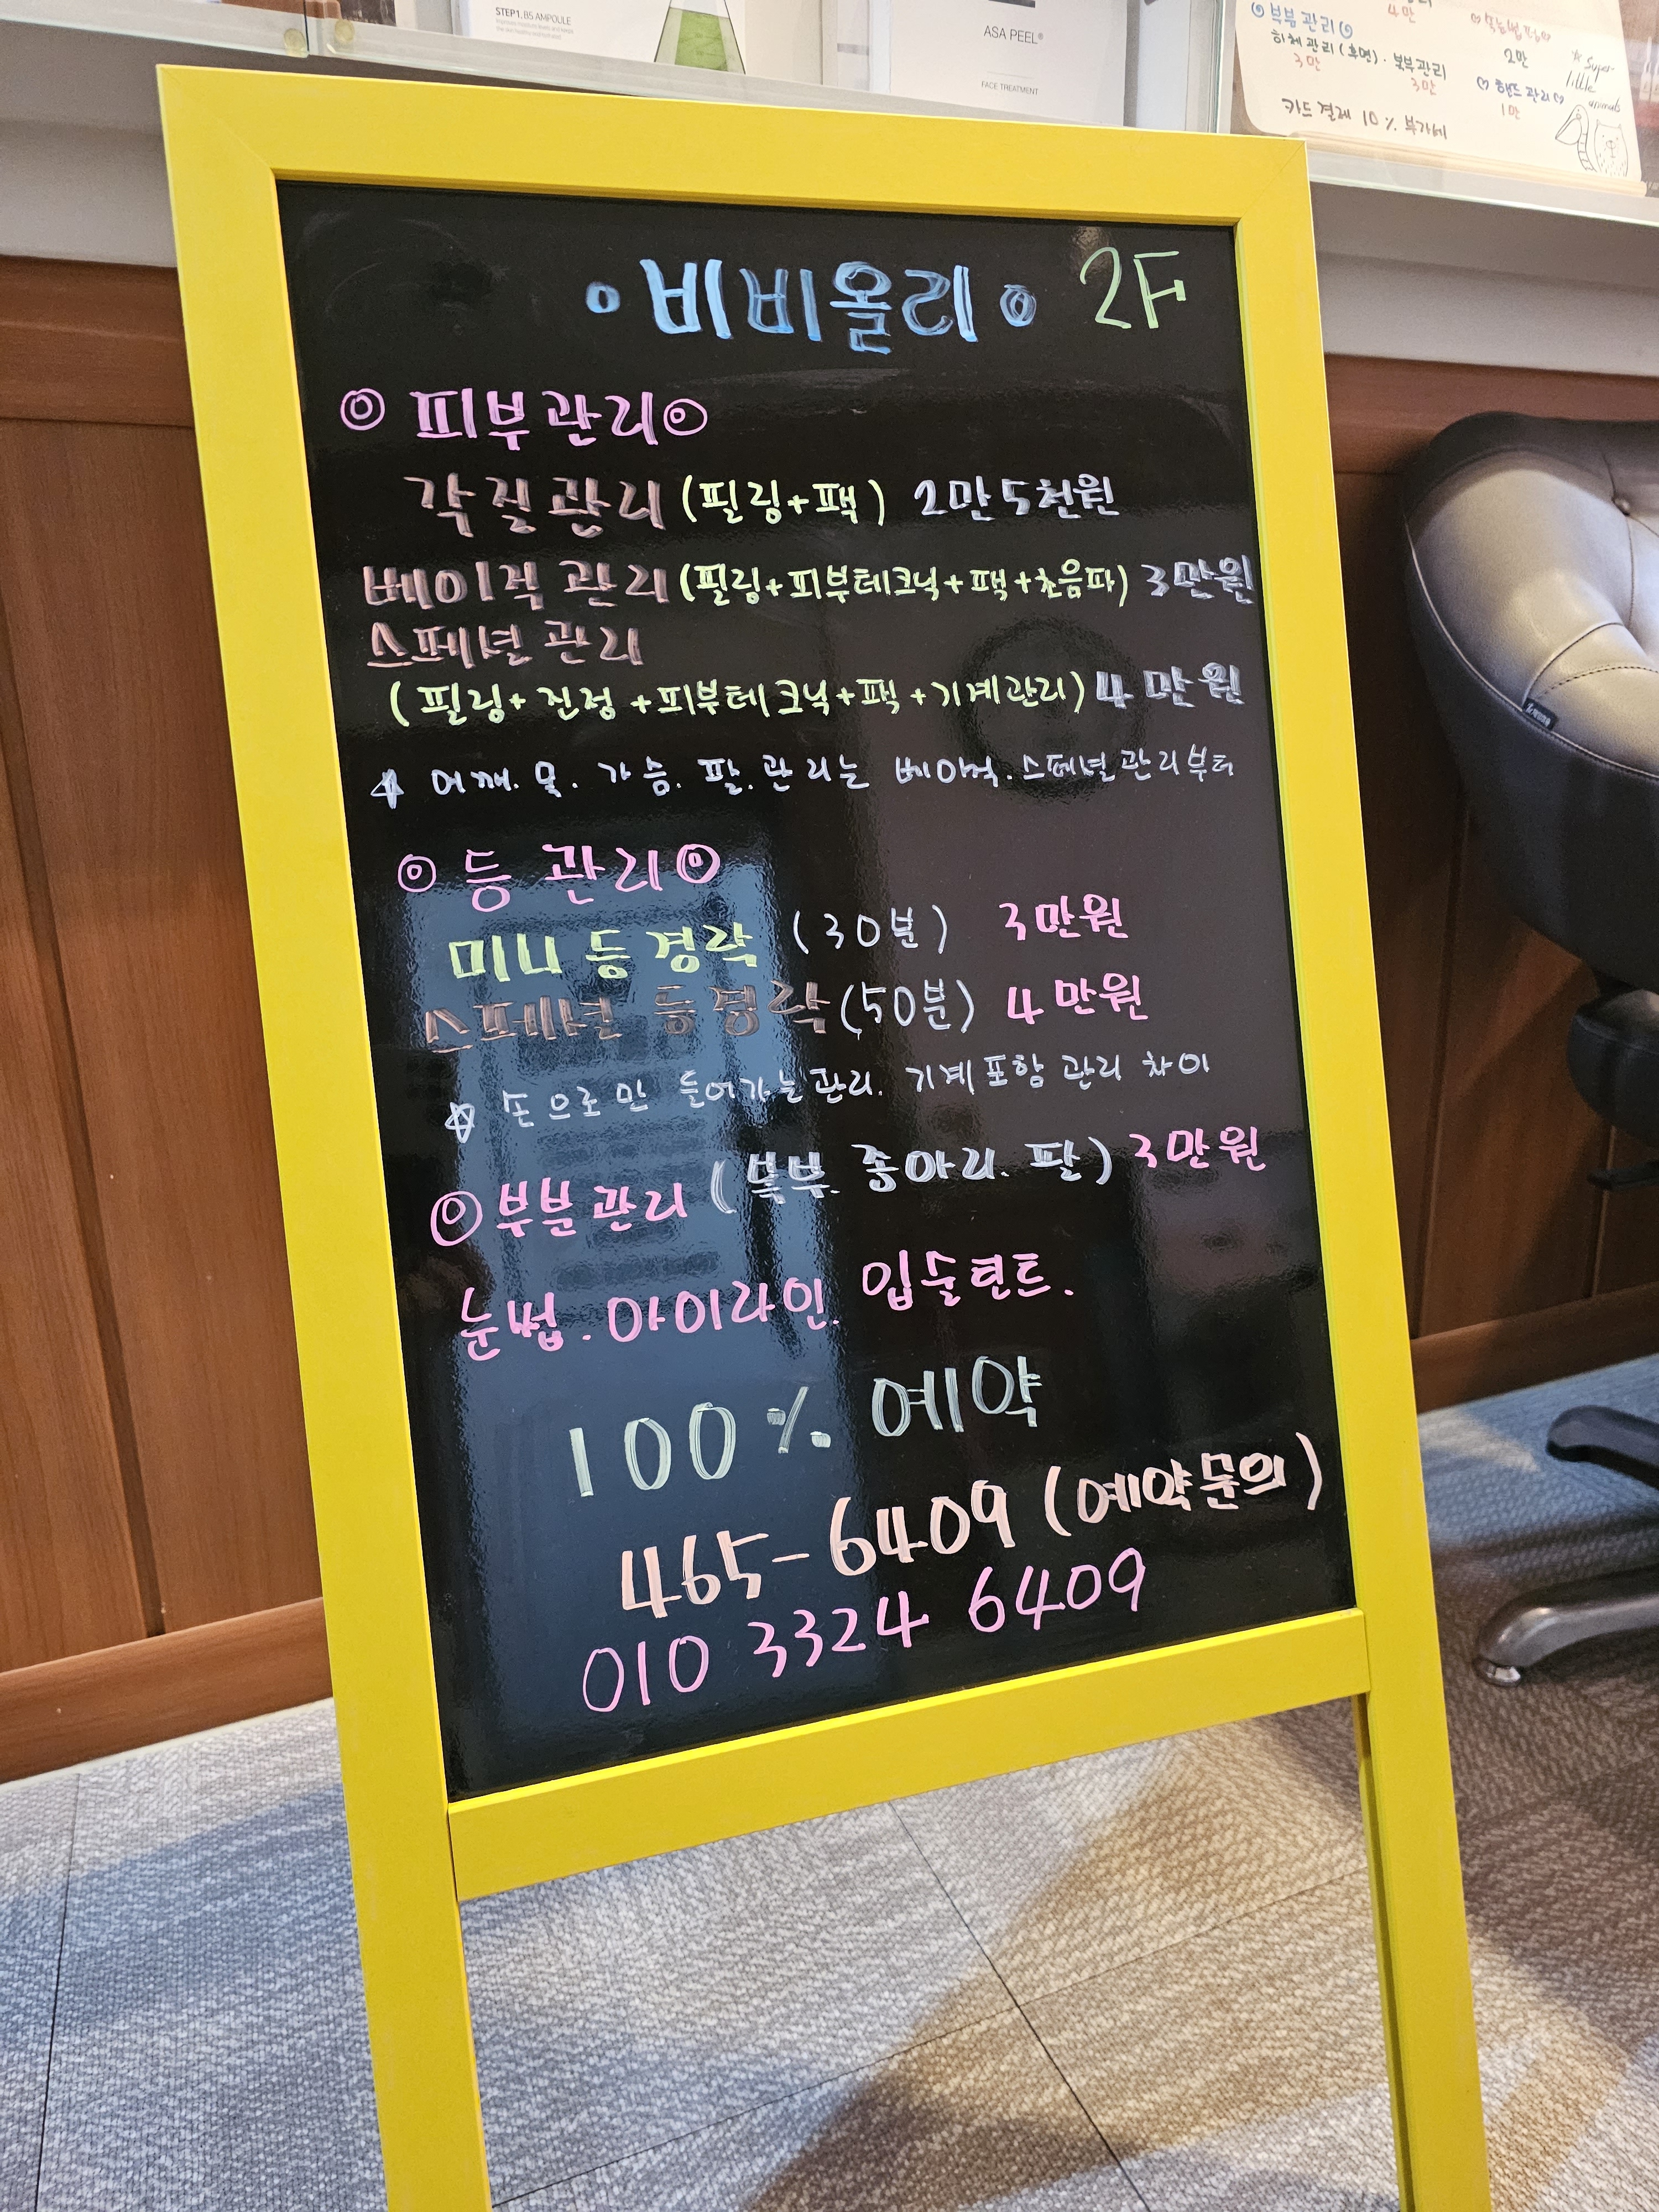 STEP1. B5 AMPOULE
ASA PEEL®
FACE TREATMENT
4만
부분관리
하체관리(후면). 복부관리
3만
3만
2만
핸드관리
1만
카드결제 10% 부가세
Super-
little
animals
비비올리 2F
피부관리
각질관리 (필링+팩) 2만5천원
베이직 관리 (필링+피부테크닉+팩+초음파) 3만원
스페셜 관리
(필링+진정+피부테크닉+팩+기계관리) 4만원
어깨. 목. 가슴. 팔. 관리는 베이직. 스페셜관리부터
등 관리
미니 등 경락 (30분) 3만원
스페셜 등경락 (50분) 4만원
손으로만 들어가는관리. 기계포함 관리 차이
부분관리 (복부. 종아리. 팔) 3만원
눈썹. 아이라인. 입술틴트.
100% 예약
465-6409 (예약문의)
010 3324 6409